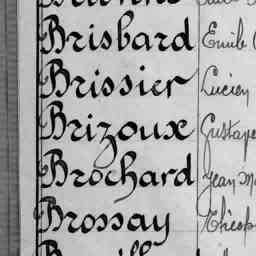 Brisbard Emile
Brissier Lucien
Brizoux Gustave
Brochard Jean M
Brossay Théop